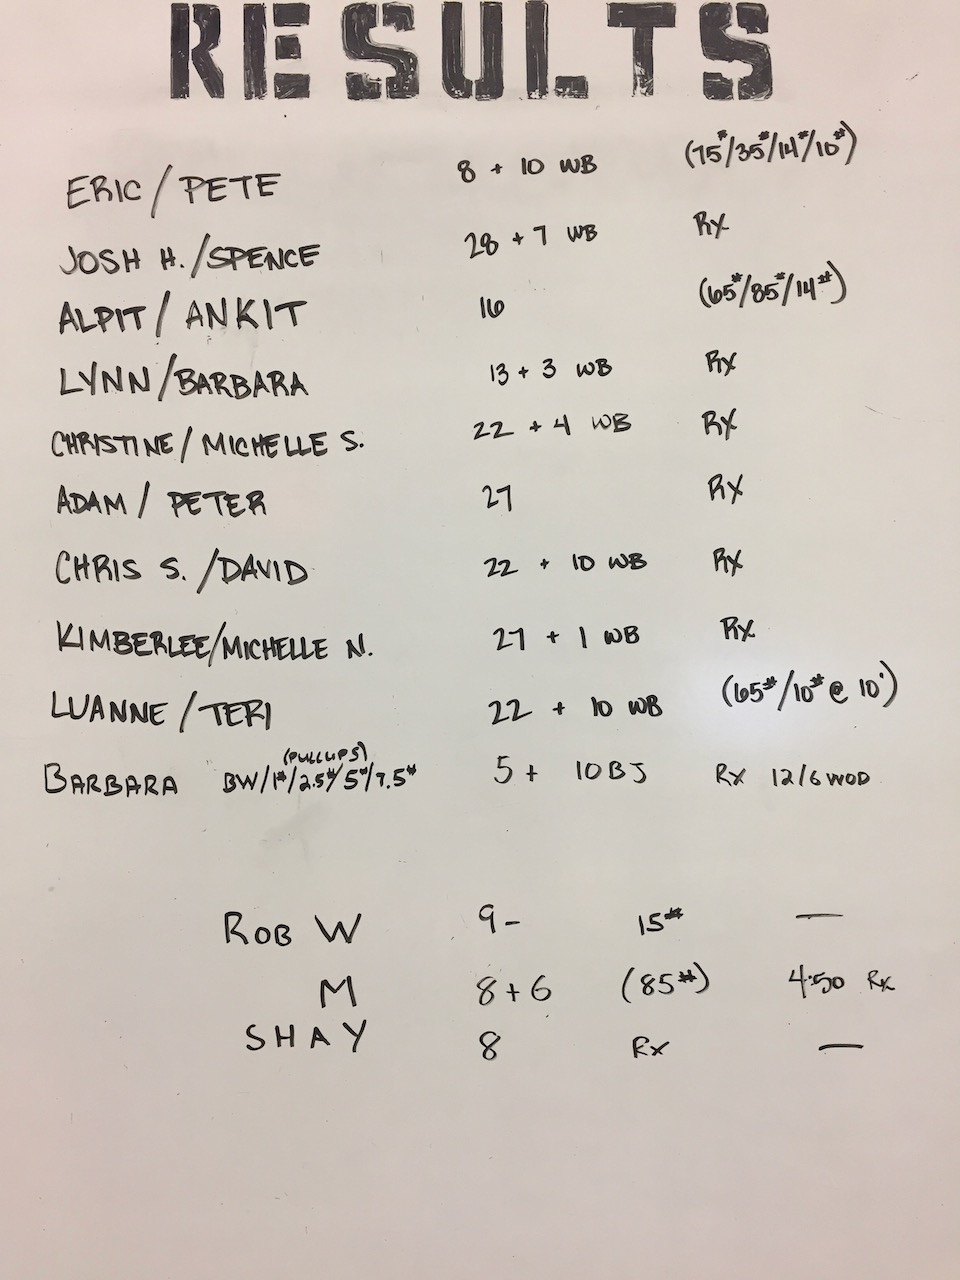 RESULTS
ERIC / PETE 8 + 10 WB (75#/35#/14#/10#)
JOSH H. / SPENCE 28 + 7 WB Rx
ALPIT / ANKIT 16 (65#/85#/14#)
LYNN / BARBARA 13 + 3 WB Rx
CHRISTINE / MICHELLE S. 22 + 4 WB Rx
ADAM / PETER 27 Rx
CHRIS S. / DAVID 22 + 10 WB Rx
KIMBERLEE / MICHELLE N. 27 + 1 WB Rx
LUANNE / TERI 22 + 10 WB (65#/10# @ 10')
(PULLUPS)
BARBARA BW/1#/2.5#/5#/7.5# 5 + 10 BJ Rx 12/6 WOD
ROB W 9- 15# —
M 8+6 (85#) 4:50 Rx
SHAY 8 Rx —